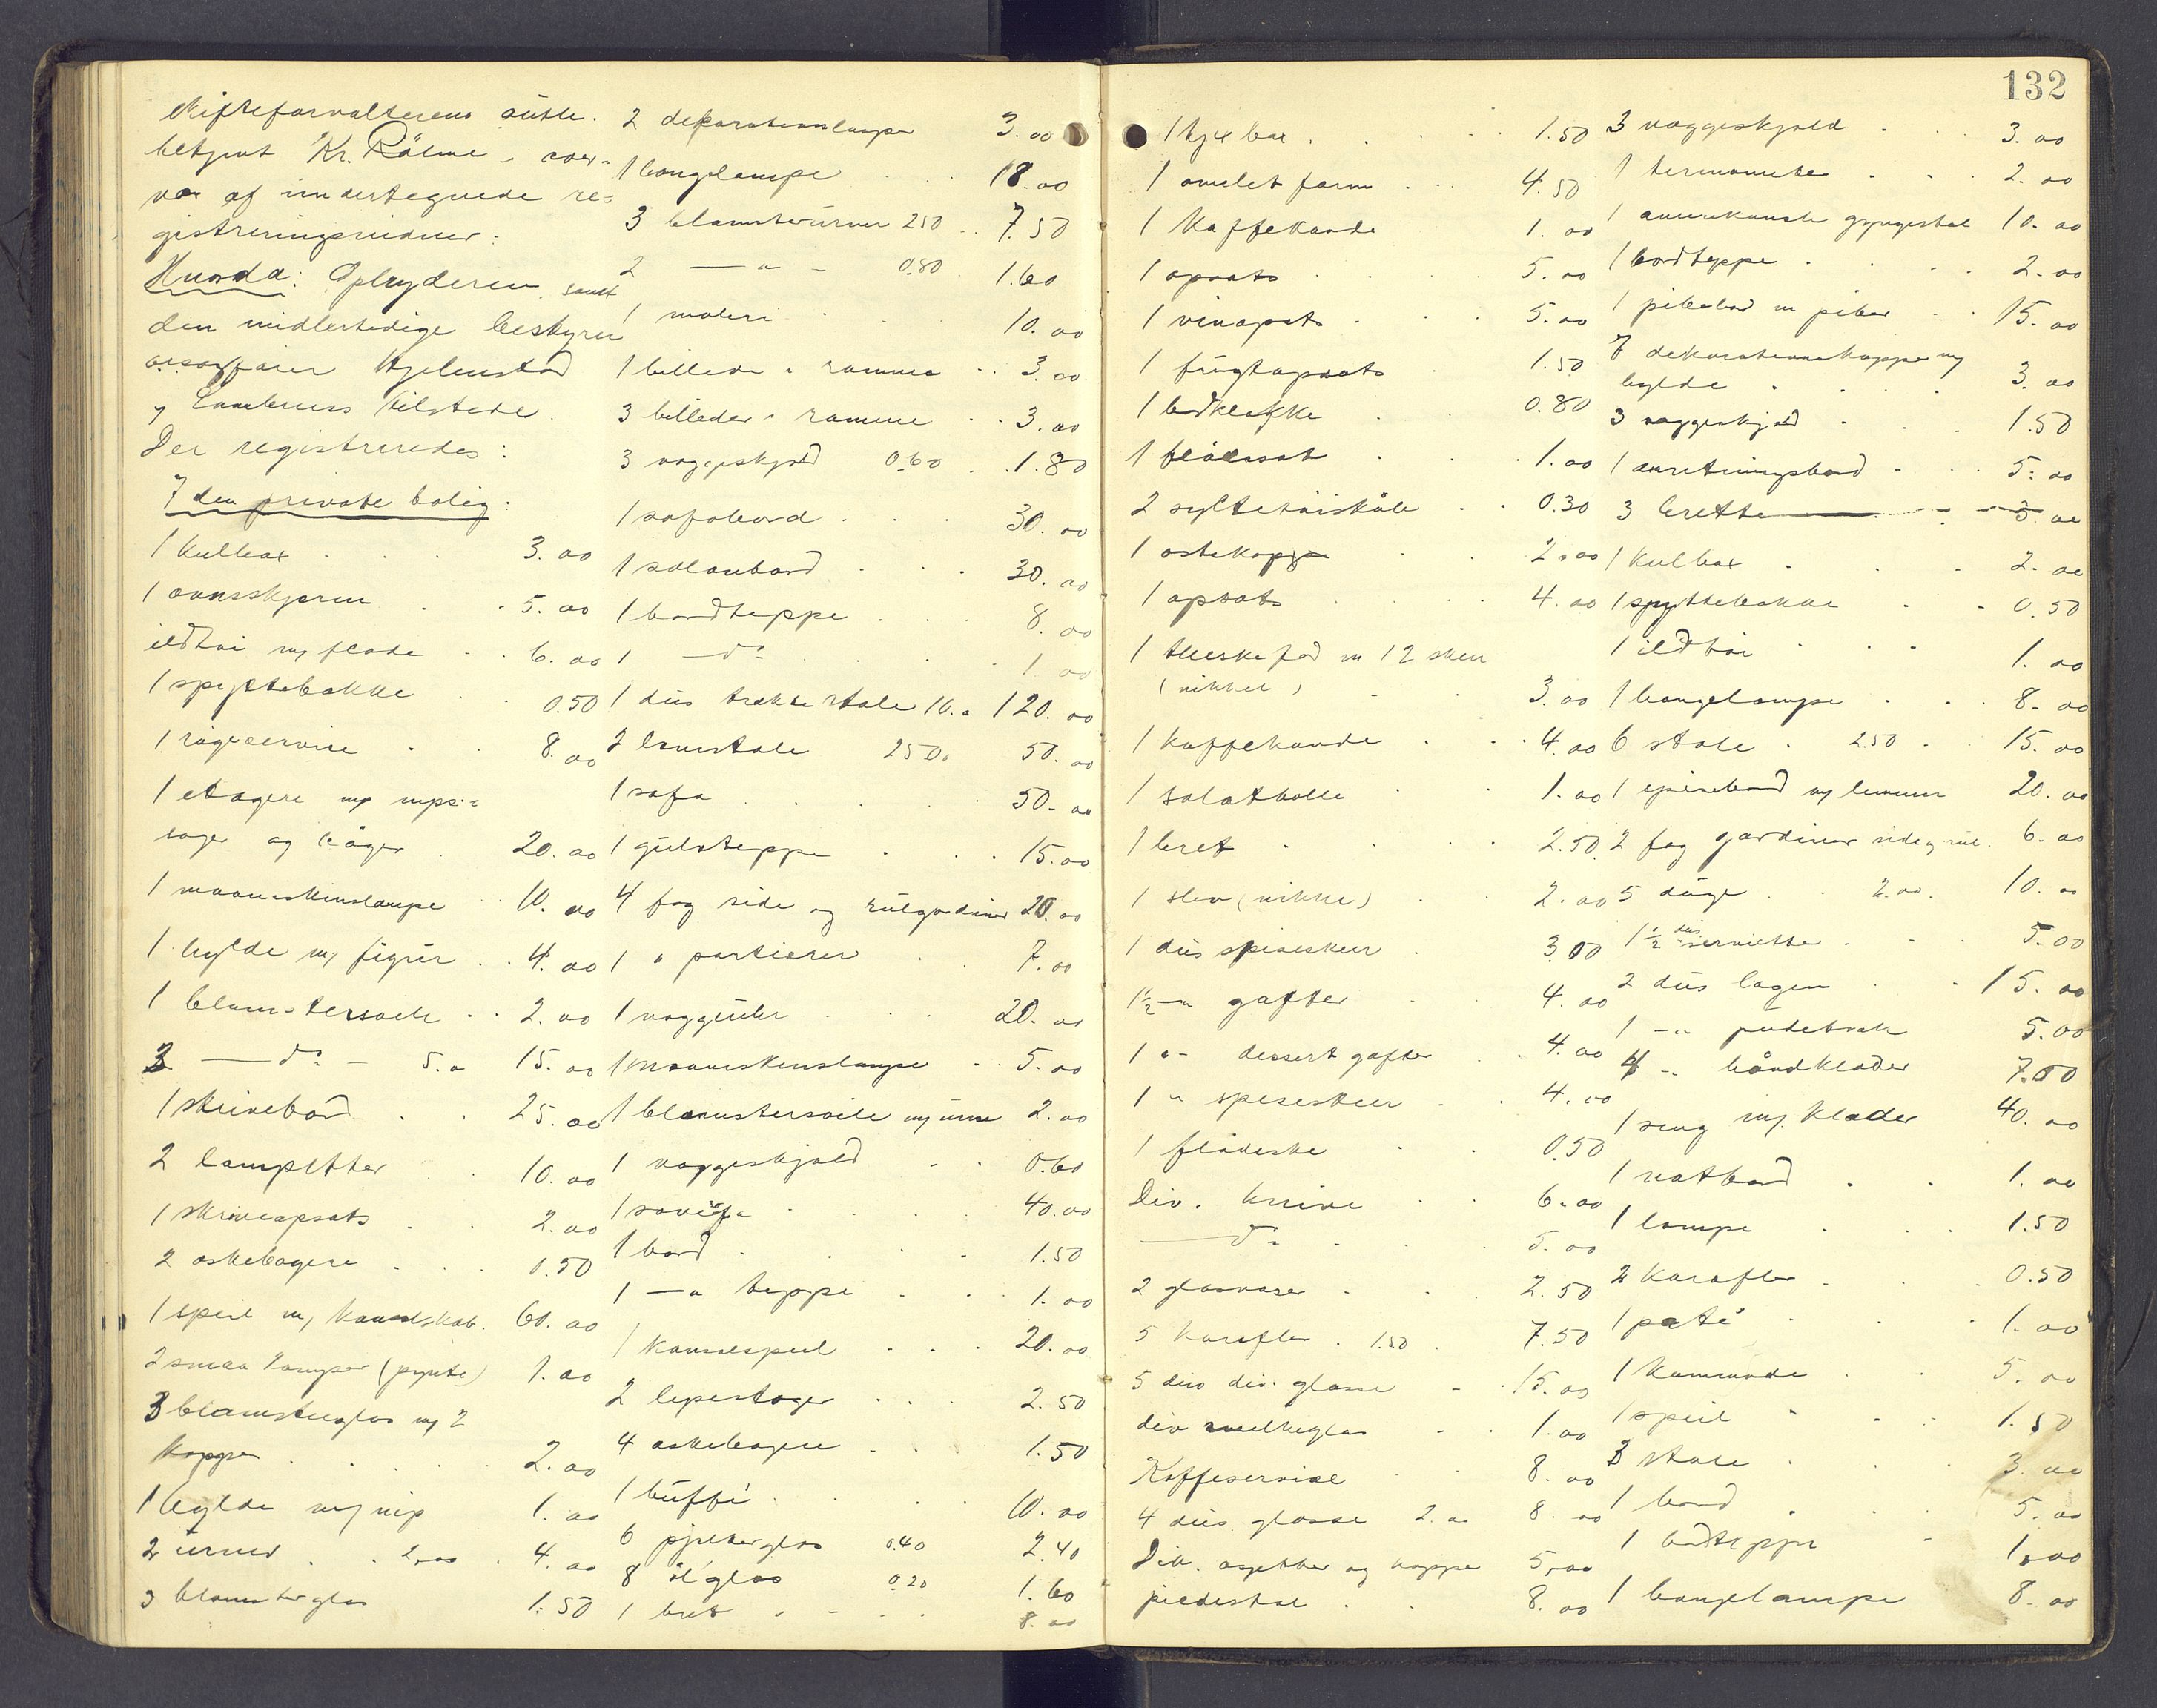 skifteforvalterens
betjent Kr. Rölme, over-
vær af undertegnede re-
gistreringsvidner:
Hvorda: Opbyderen samt
den midlertidige bestyrer
Hjelmstad
tilstede.
Der registreredes:
I den private bolig:
1 kulbox . . . 3.00
1 ovnsskjærm . . 5.00
ildtöi m/ flade . . 6.00
1 spyttebakke . . 0.50
1 rögeservise . . 8.00
1 etagere m/ nips-
sager og böger . 20.00
1 maaneskinslampe . 10.00
1 hylde m/ figur . . 4.00
1 blomstersöile . . 2.00
3 — do — 5.- 15.00
1 skrivebord . . 25.00
2 lampetter . . 10.00
1 skriveopsats . . 2.00
2 askebægere . . . 0.50
1 speil m/ konsolskab. 60.00
2 smaa lamper (pynte) 1.00
3 blomsterglas m/ 2
kopper . . . . 2.00
1 hylde m/ nip 1.00
2 urner . . 2.00 . 4.00
3 blomsterglas 1.50
2 dekorationslamper 3.00
1 hængelampe . . . 18.00
3 blomsterurner 2.50 . . 7.50
2 — " - 0.80 1.60
1 maleri . . . 10.00
1 billede i ramme . . 3.00
3 billeder i ramme . . 3.00
3 væggeskjold 0.60 . . 1.80
1 sofabord . . . 30.00
1 salonbord . . . 30.00
1 bordteppe . . . 8.00
1 — do . . . . 1.00
1 dus trækte stole 10.- 120.00
2 lænstole 25.0. 50.00
1 sofa . . . . 50.00
1 gulvteppe . . . 15.00
4 fag side og rulgardiner 20.00
1 " portierer . . 7.00
1 væggeuhr . . . 20.00
1 maaneskinslampe . . 5.00
1 blomstersöile m/ urne 2.00
1 væggeskjold . . 0.60
1 40.00
1 bord . . . . 1.50
1 —" teppe . . . 1.00
1 konsolspeil . . . 20.00
2 lysestager . . . 2.50
4 askebægere . . . 1.50
1 büffé . . . . 10.00
6 pjolterglas 0.40 2.40
8 ölglas 0.20 1.60
1 bret . . . . 8.00
132
1 . . . . 1.50
1 omelet form . . . 4.50
1 Kaffekande 1.00
1 opsats . . . 5.00
1 vinopsats . . . 5.00
1 frugtopsats . 1.50
1 bordklokke . 0.80
1 flödesat . . . 1.00
2 syltetöiskåle . . 0.30
1 ostekoppe . . 2.00
1 opsats . . . . 4.00
1 theskefad m 12 skeer
(nikkel) . . 3.00
1 kaffekande . . . 4.00
1 salatbolle . . . 1.00
1 bret . . . . 2.50
1 slev (nikkel) . . 2.00
1 dus spiseskeer . 3.00
1½ —" gafler . . 4.00
1 "- dessert gafler . . 4.00
1 " spiseskeer . . 4.00
1 flödeske . . 0.50
Div. knive . . 6.00
— do . . . 5.00
2 glasvaser . . . 2.50
5 karafler . 1.50 . 7.50
5 dus div. glasse . . 15.00
div melkeglas . . 1.00
Kaffeservise . . 8.00
4 dus glasse 2.00 8.00
Div. asjetter og kopper 5.00
piedestal . . . 8.00
3 væggeskjold . . . 3.00
1 termometer . . . 2.00
1 amerikansk gyngestol 10.00
1 bordteppe . . . 2.00
1 pibebord m piber . . 15.00
7 dekorationskopper m/
hylde . . . . 3.00
3 væggeskjold . . . 1.50
1 anretningsbord . . . 5.00
3 brette . . . 3.00
1 kulbox . . . 2.00
1 spyttebakke . . 0.50
1 ildtöi . . . 1.00
1 hængelampe . . . 8.00
6 stole . 2.50 . . 15.00
1 spisebord m/ lemmer 20.00
2 fag gardiner side og rul. 6.00
5 duge . . 2.00. 10.00
1½ dus servietter . . . 5.00
2 dus lagen . . . 15.00
1 —" pudetræk 5.00
4 -" håndklæder 7.00
1 seng m/ klæder 40.00
1 natbord . . 1.00
1 lampe . . . 1.50
2 karafler . . . 0.50
1 . . . 1.00
1 kommode . . 5.00
1 speil . . . 1.50
3 stole . . . 3.00
1 bord . . . 5.00
1 bordteppe . 1.00
1 hængelampe 8.00